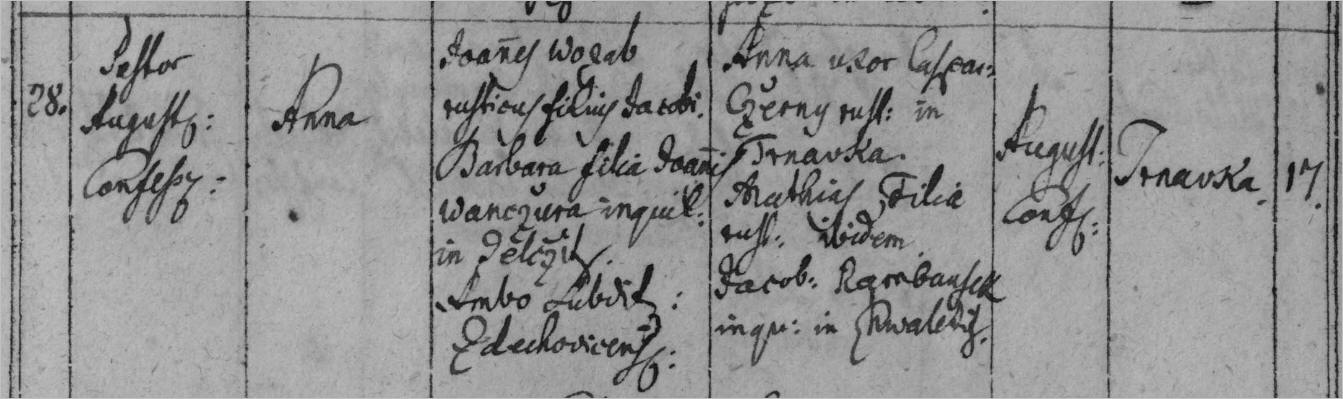 28.
Pastor
August:
Confess:
Anna
Joanes Worab
rusticus filius Jacobi.
Barbara filia Joanis
Wanczura inquil:
in Telczitz.
Ambo Subdit:
Zdechovicens:
Anna uxor Caspar:
Czerny rust: in
Trnavka.
Mathias Filia
rust: ibidem
Jacob:
inqu: in Chwaletitz.
August:
Conf:
Trnavka.
17.